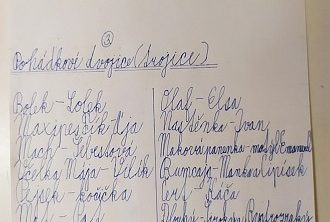 3
Pohádkové dvojice (trojice)
Bolek - Lolek
Maxipesfík - Ája
Mach - Šebestová
Včelka Mája - Vilík
Pejsek - kočička
Olaf - Elsa
Nastěnka - Ivan
Makovápanenka - motýl Emanuel
Rumcajs - Manka Cipísek